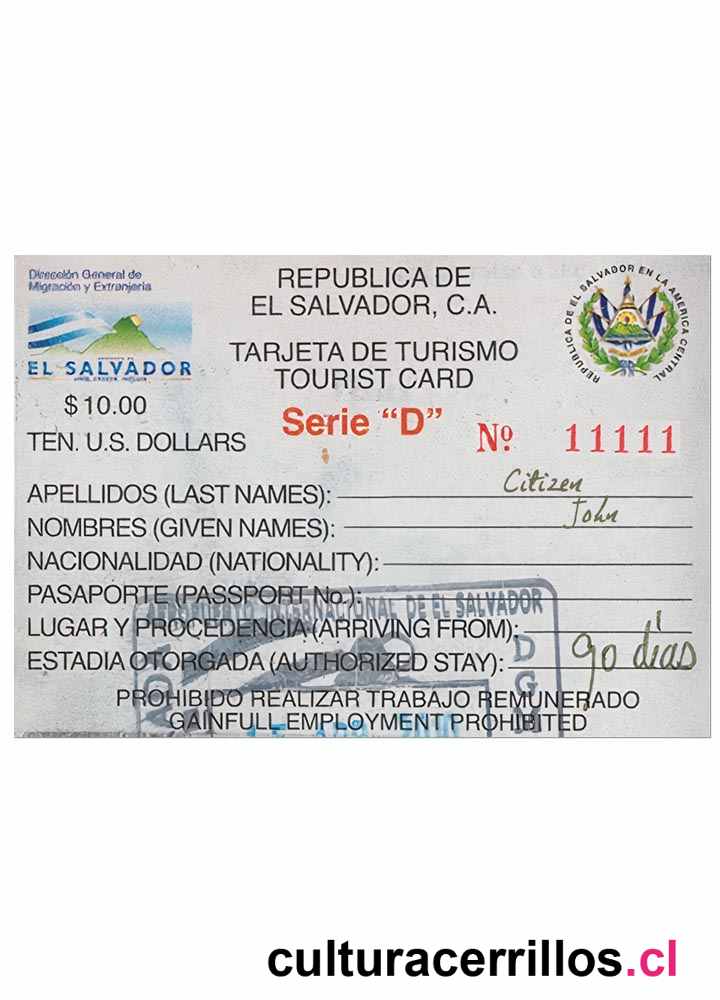 Dirección General de
Migración y Extranjería
EL SALVADOR
$ 10.00
TEN. U.S. DOLLARS
REPUBLICA DE
EL SALVADOR, C.A.
TARJETA DE TURISMO
TOURIST CARD
Serie “D”
REPUBLICA DE EL SALVADOR EN LA AMERICA CENTRAL
Nº 11111
APELLIDOS (LAST NAMES): Citizen
NOMBRES (GIVEN NAMES): John
NACIONALIDAD (NATIONALITY):
PASAPORTE (PASSPORT No.):
AEROPUERTO INTERNACIONAL DE EL SALVADOR
LUGAR Y PROCEDENCIA (ARRIVING FROM):
ESTADIA OTORGADA (AUTHORIZED STAY): 90 días
D G M
PROHIBIDO REALIZAR TRABAJO REMUNERADO
GAINFULL EMPLOYMENT PROHIBITED
culturacerrillos.cl